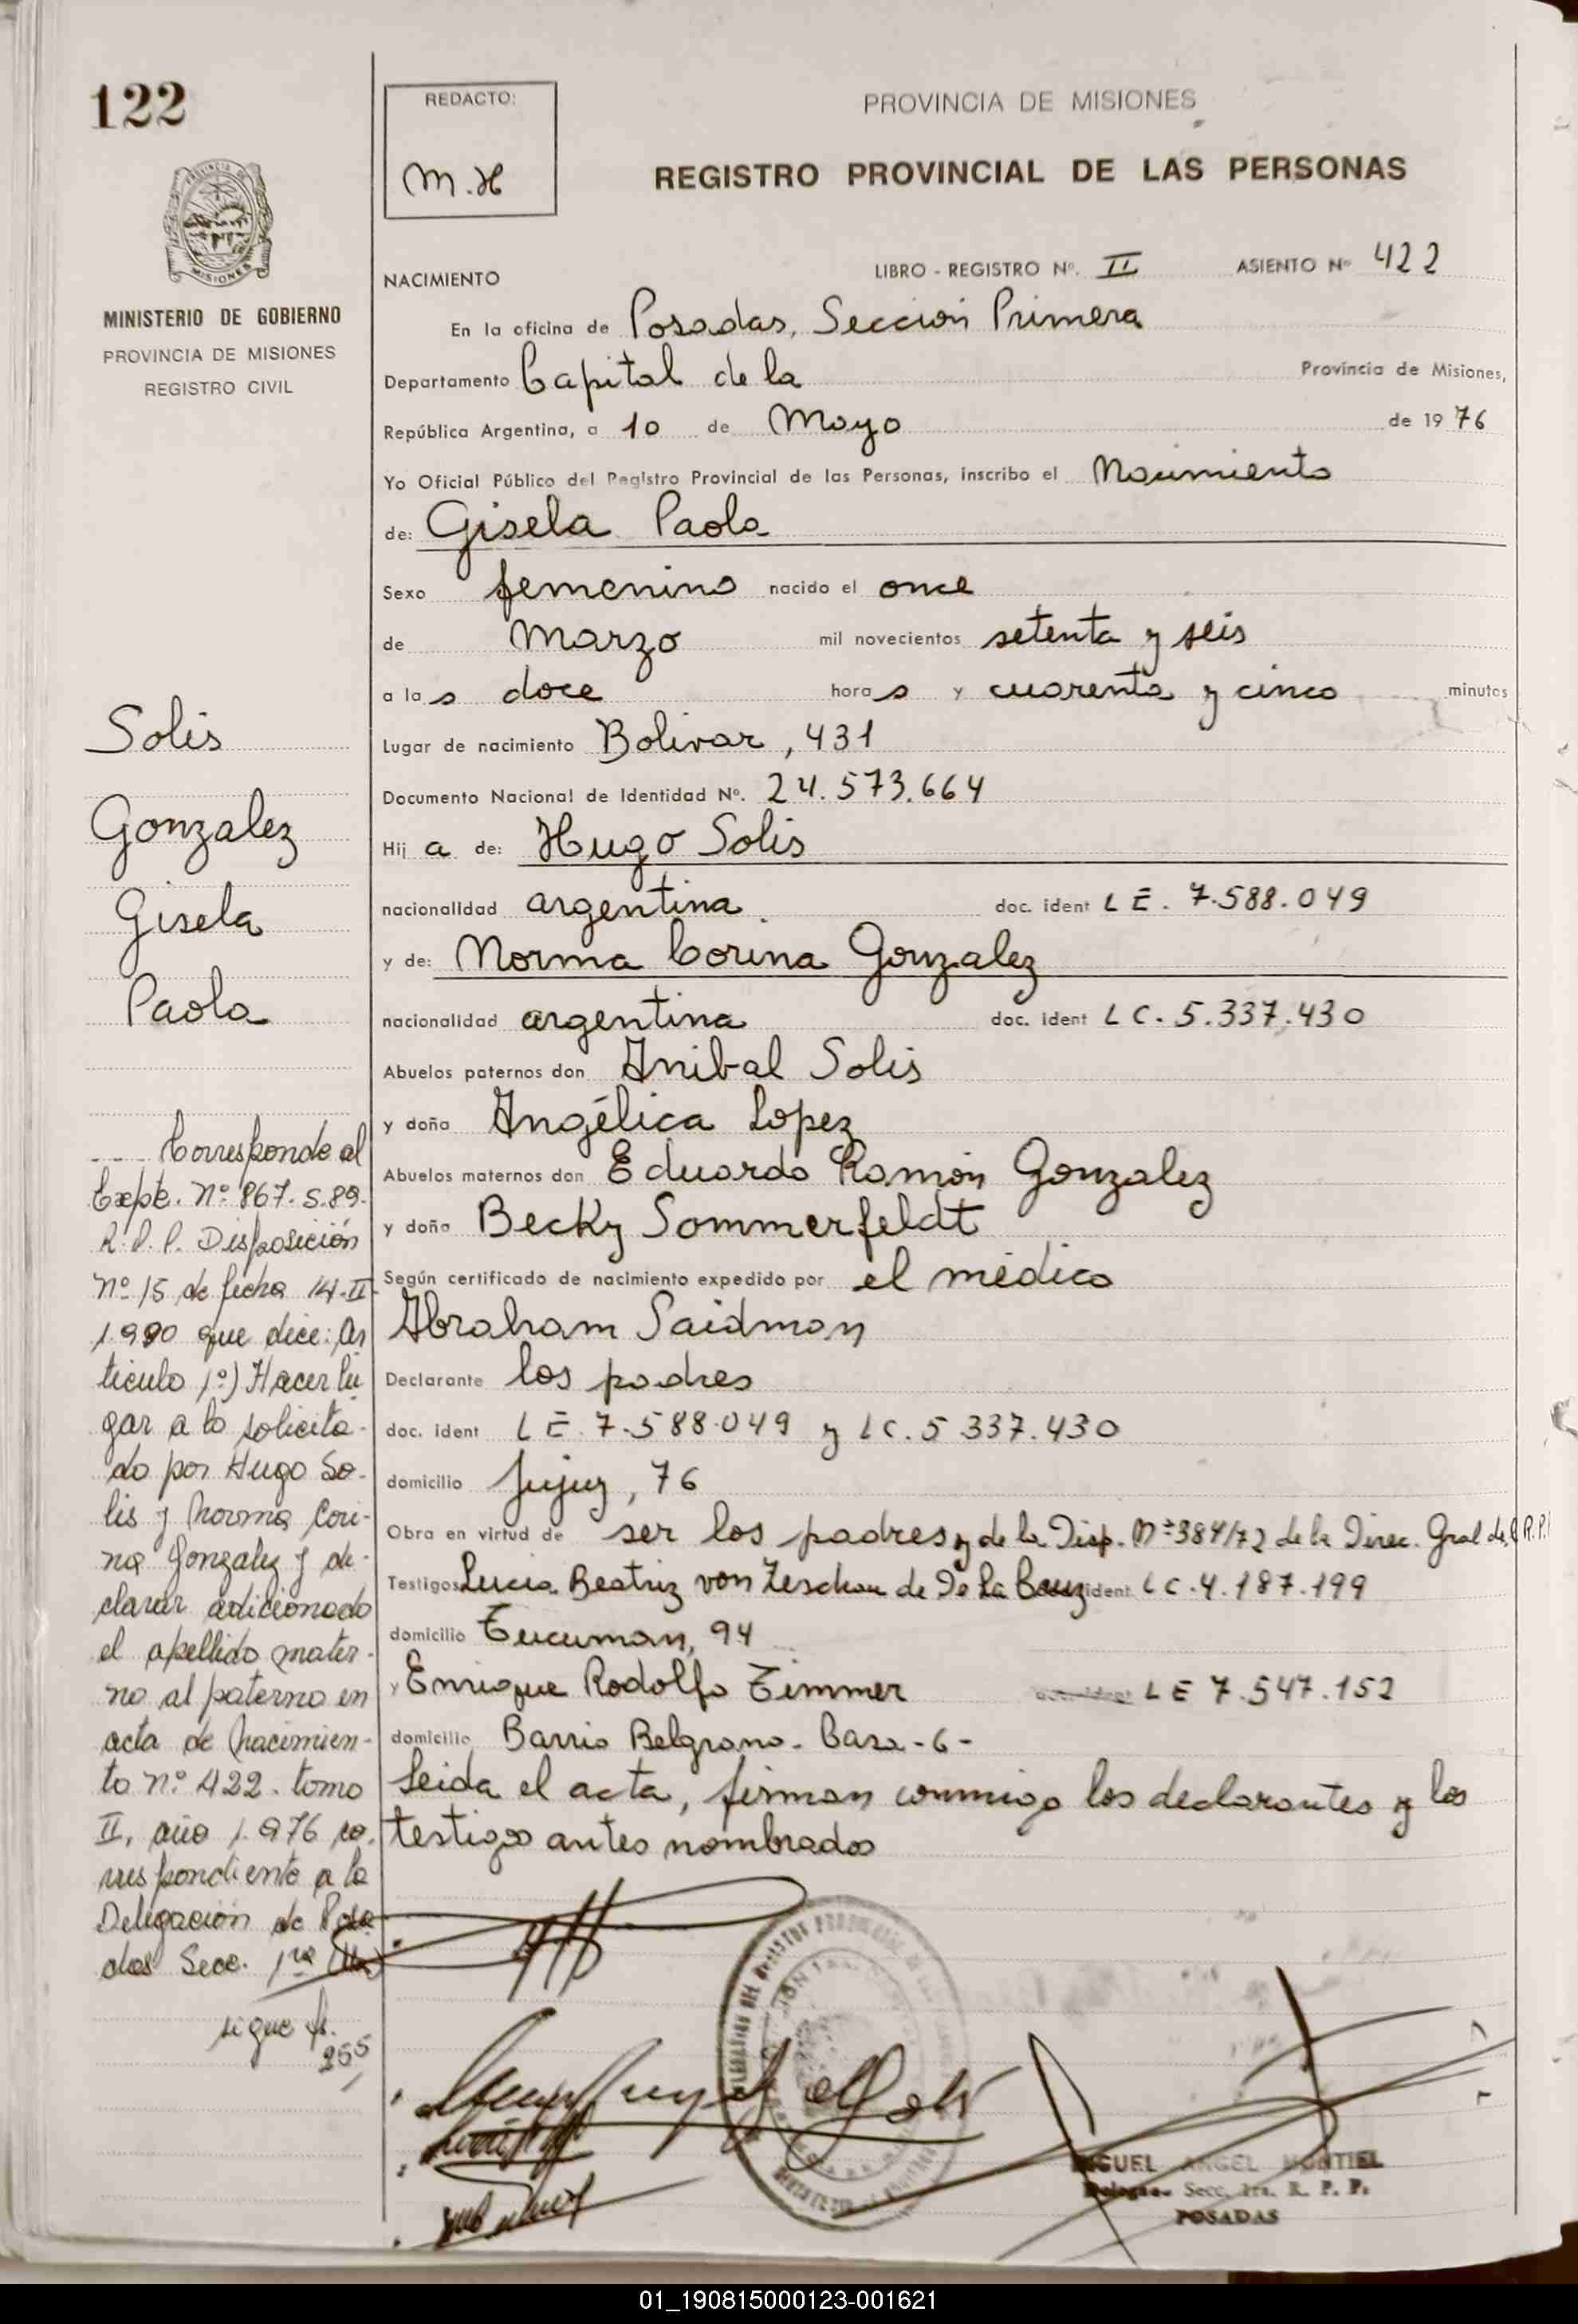 122
REDACTO:
M.H
PROVINCIA DE MISIONES
REGISTRO PROVINCIAL DE LAS PERSONAS
MISIONES
MINISTERIO DE GOBIERNO
PROVINCIA DE MISIONES
REGISTRO CIVIL
NACIMIENTO LIBRO - REGISTRO Nº. II ASIENTO Nº 422
En la oficina de Posadas, Sección Primera
Departamento Capital de la Provincia de Misiones,
República Argentina, a 10 de Mayo de 1976
Yo Oficial Público del Registro Provincial de las Personas, inscribo el Nacimiento
de: Gisela Paola
Sexo femenino nacido el once
de Marzo mil novecientos setenta y seis
a las doce horas y cuarenta y cinco minutos
Lugar de nacimiento Bolivar, 431
Documento Nacional de Identidad Nº. 24.573.664
Hija de: Hugo Solis
nacionalidad argentina. doc. ident LE. 7.588.049
y de: Norma Corina Gonzalez
nacionalidad argentina doc. ident LC. 5.337.430
Abuelos paternos don Anibal Solis
y doña Angélica Lopez
Abuelos maternos don Eduardo Ramón Gonzalez
y doña Becky Sommerfeldt
Según certificado de nacimiento expedido por el médico
Abraham Saidman
Declarante los padres
doc. ident LE. 7.588.049 y LC. 5 337.430
domicilio Jujuy, 76
Obra en virtud de ser los padres y de la Disp. Nº 384/72 de la Direc. Gral de R.P.P.
Testigos Lucia Beatriz von Zeschau de De La Cruz ident LC. 4.187.199
domicilio Tucuman, 94
y Enrique Rodolfo Zimmer LE 7.547.152
domicilio Barrio Belgrano - Casa - 6 -
Leida el acta, firman conmigo los declarantes y los
testigos antes nombrados
Solis
Gonzalez
Gisela
Paola
Corresponde al
Expte. Nº 867. S.89.
R.P.P. Disposición
Nº 15 de fecha 14-II-
1.990 que dice: Ar
ticulo 1º) Hacer lu
gar a lo solicita-
do por Hugo So-
lis y Norma Cori-
na Gonzalez y de-
clarar adicionado
el apellido mater-
no al paterno en
acta de Nacimien-
to Nº 422. tomo
II, año 1.976 co.
rrespondiente a la
Delegación de Posa
das Secc. 1ra
sigue f.
255
MIGUEL ANGEL MONTIEL
Delegado Secc. 1ra. R. P. P.
POSADAS
01_190815000123-001621